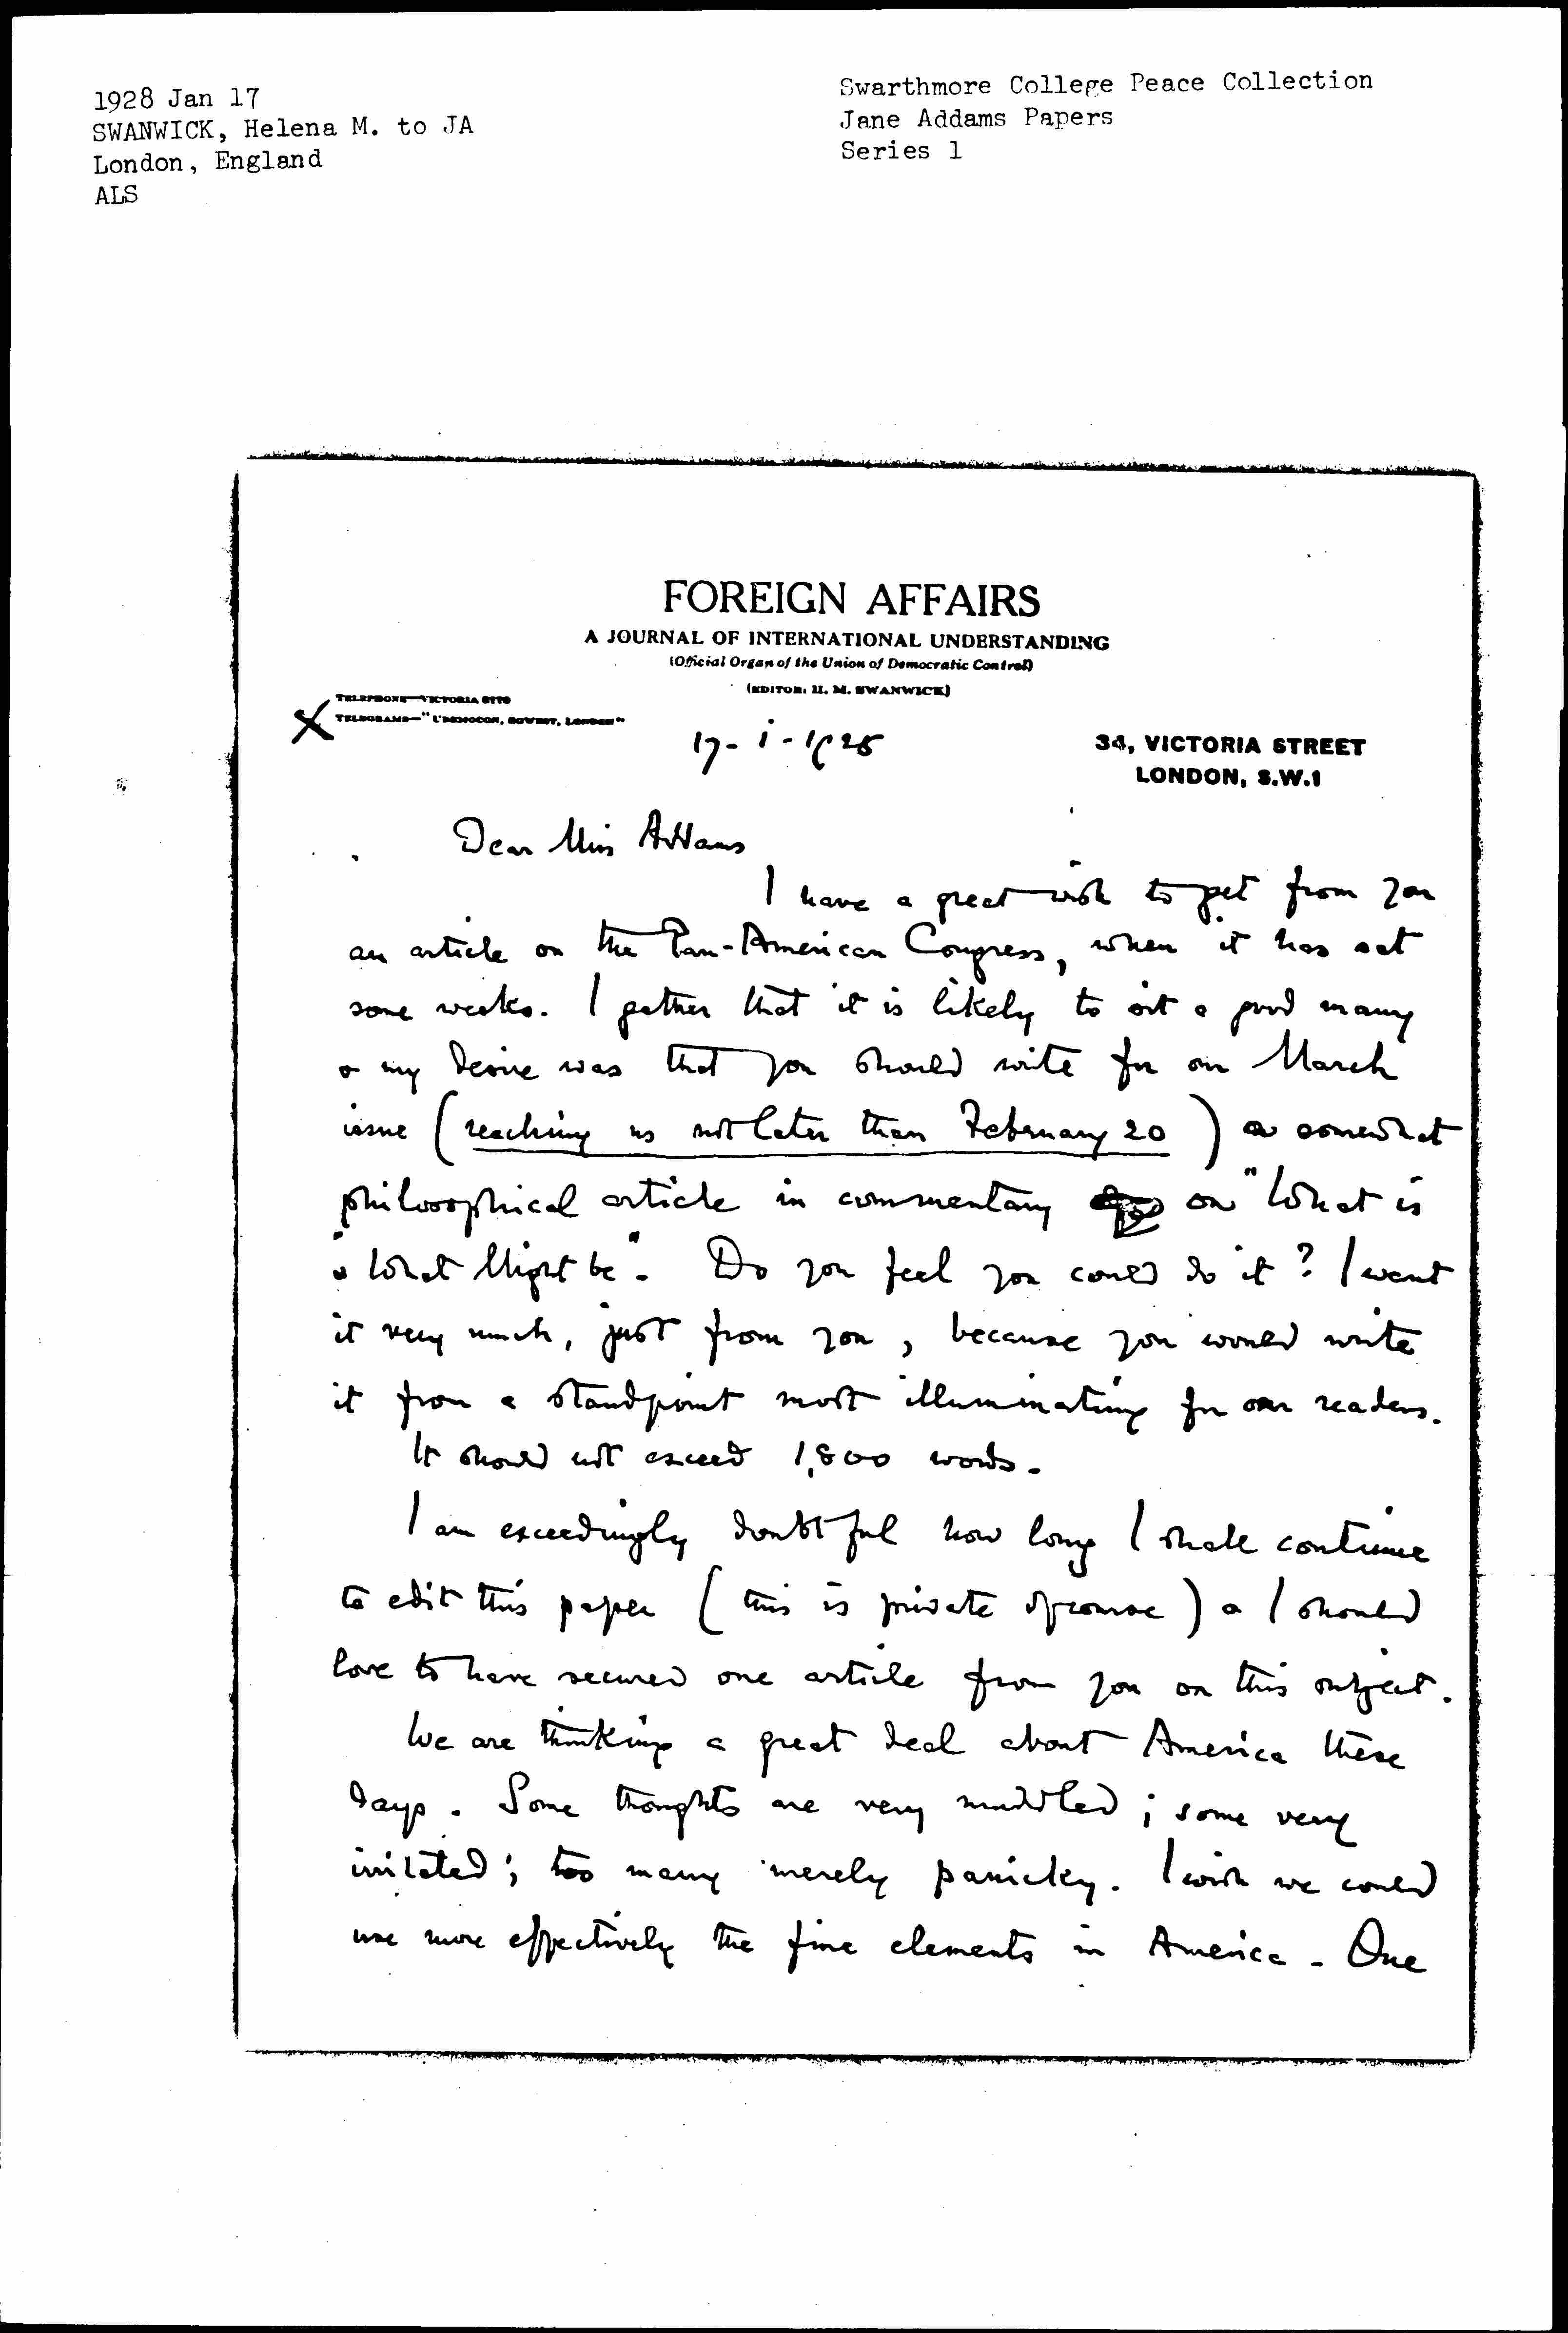 1928 Jan 17
SWANWICK, Helena M. to JA
London, England
ALS
Swarthmore College Peace Collection
Jane Addams Papers
Series 1
FOREIGN AFFAIRS
A JOURNAL OF INTERNATIONAL UNDERSTANDING
(Official Organ of the Union of Democratic Control)
(EDITOR: H. M. SWANWICK)
TELEPHONE—VICTORIA
TELEGRAMS—" LONDON"
17-i-1928
34, VICTORIA STREET
LONDON, S.W.1
Dear Miss Addams
I have a great wish to get from you
an article on the Pan-American Congress, when it has sat
some weeks. I gather that it is likely to sit a good many
& my desire was that you should write for our March
issue (reaching us not later than February 20) a somewhat
philosophical article in commentary on "What is
" & What Might be". Do you feel you could do it? I want
it very much, just from you, because you would write
it from a standpoint most illuminating for our readers.
It should not exceed 1,800 words.
I am exceedingly doubtful how long I shall continue
to edit this paper (this is private of course) & I should
love to have secured one article from you on this subject.
We are thinking a great deal about America these
days. Some thoughts are very muddled; some very
irritated; too many merely panicky. I wish we could
use more effectively the fine elements in America. One